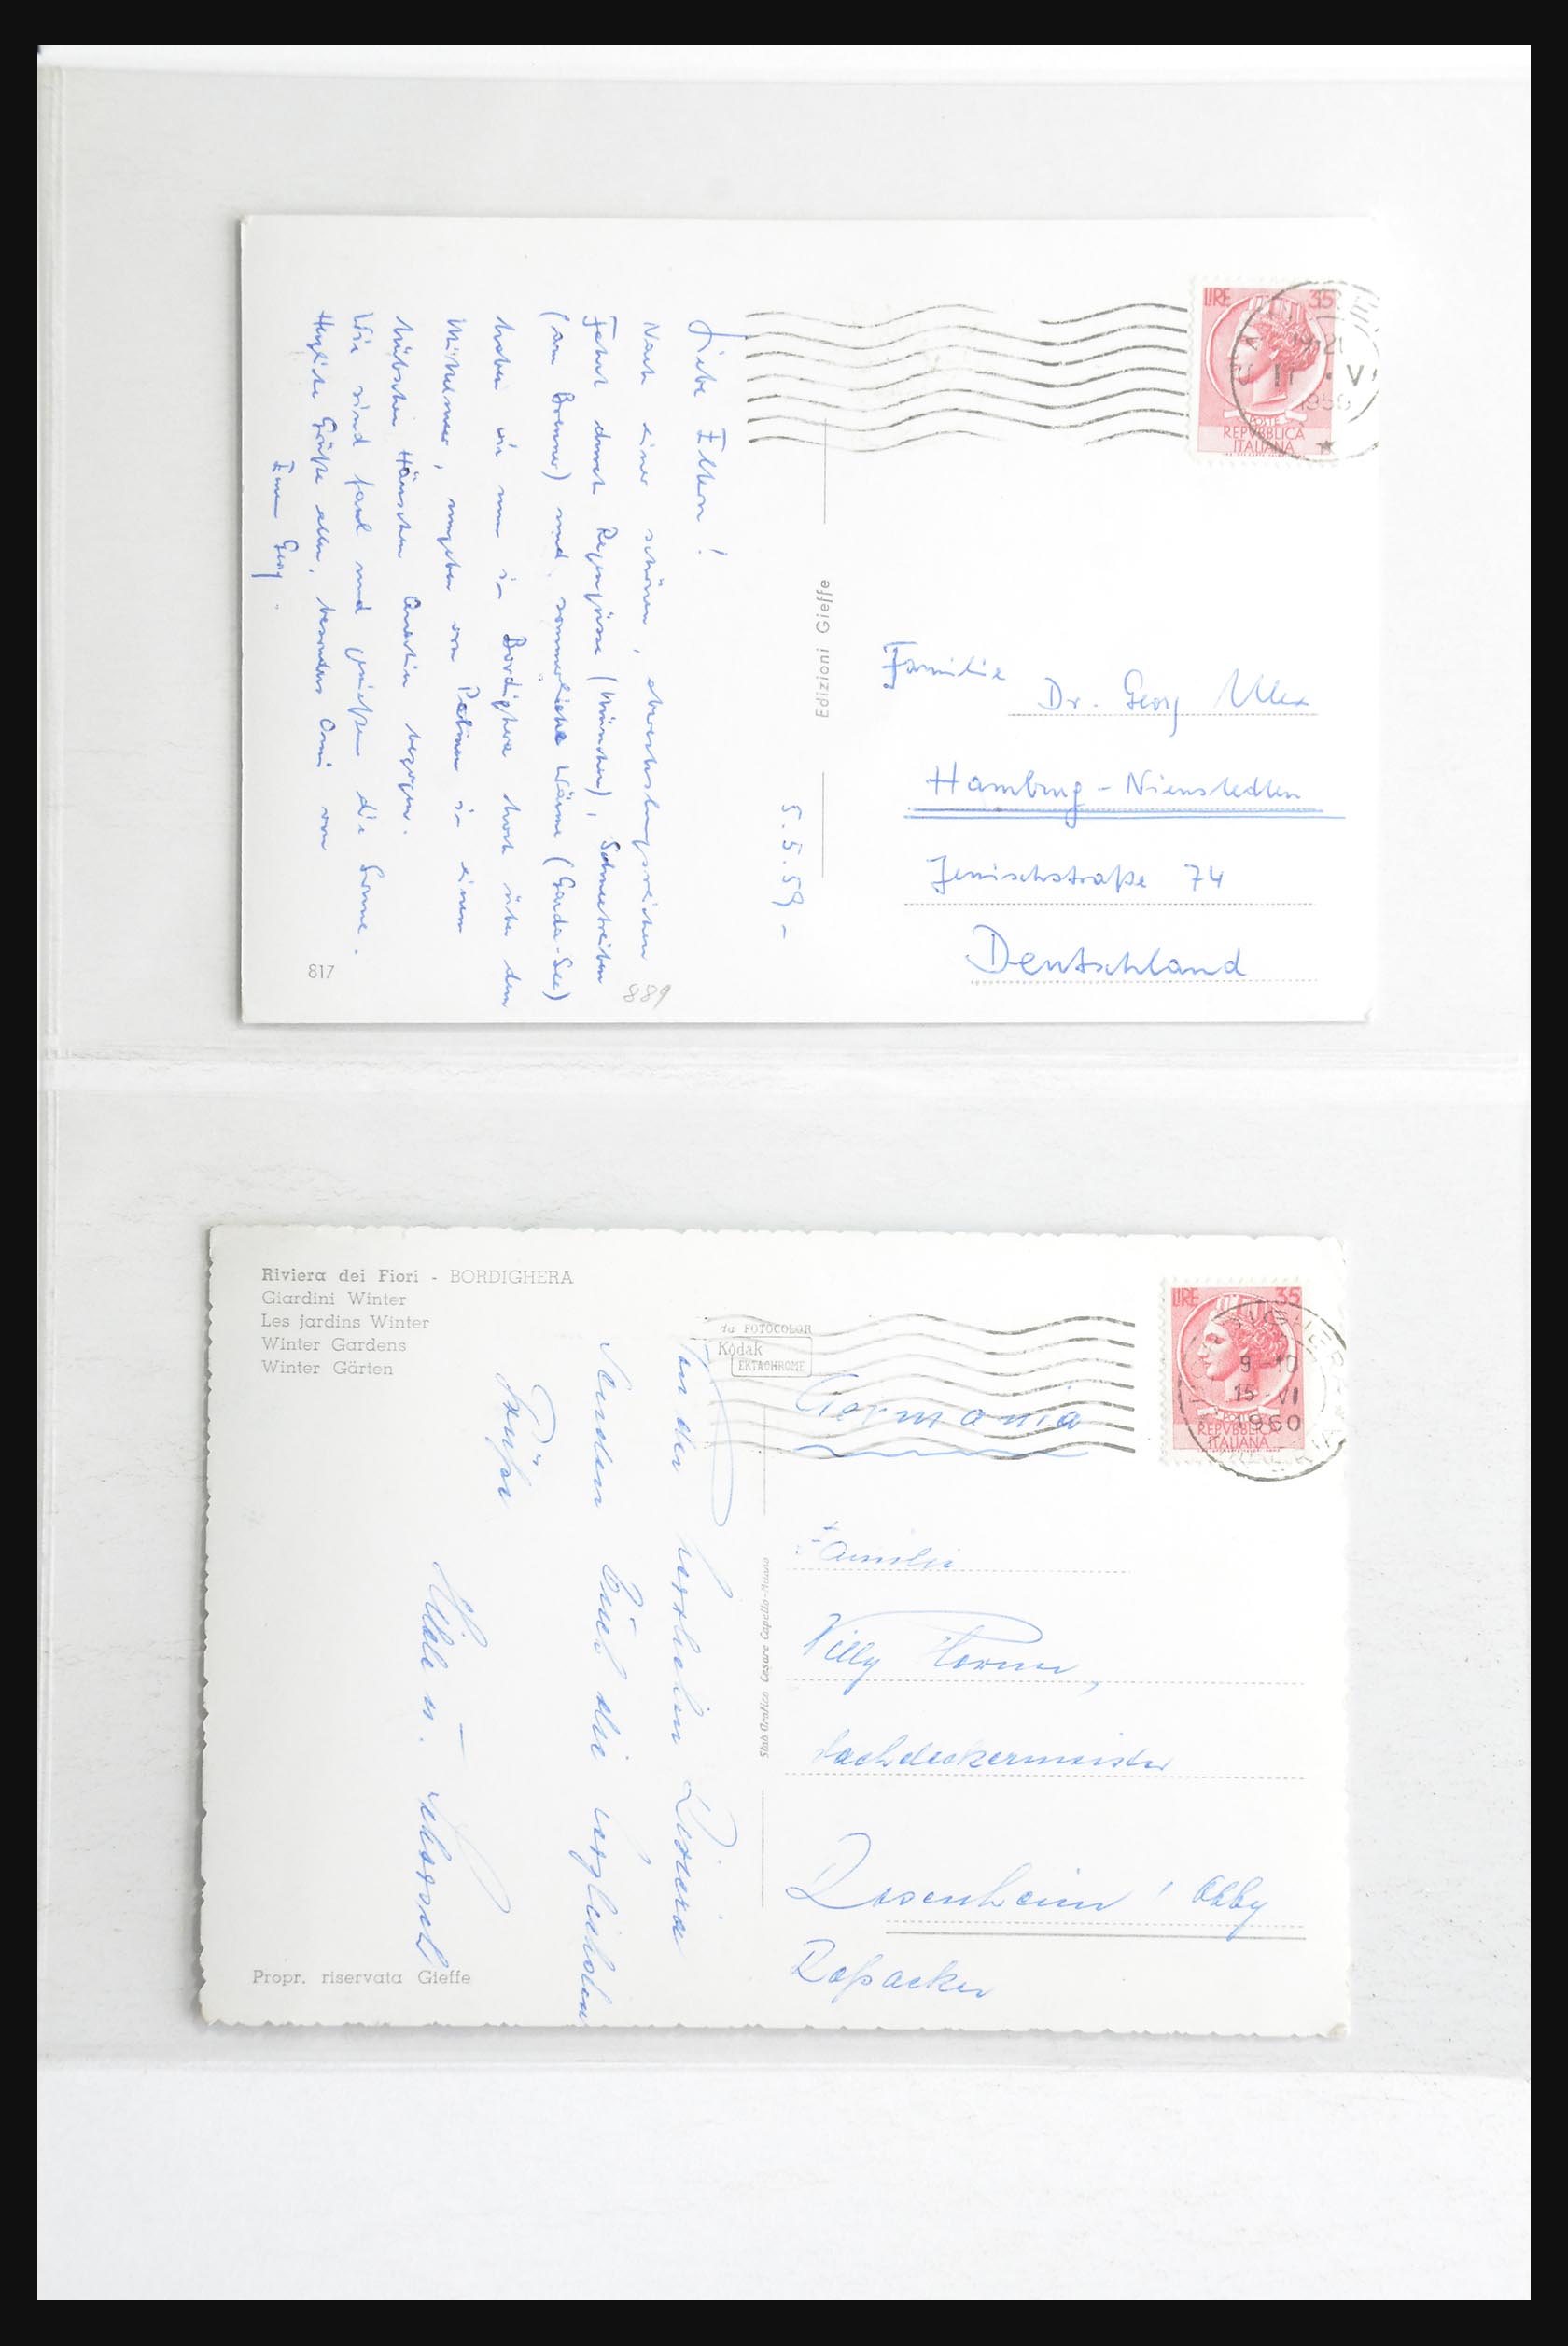 Liebe Eltern!
Nach einer schönen, abwechslungsreichen
Fahrt durch Regengüsse (München), Schneetreiben
(am Brenner) und sommerliche Wärme (Garda-See)
haben wir nun in Bordighera hoch über dem
Mittelmeer, umgeben von Palmen in einem
hübschen Häuschen Quartier bezogen.
Wir sind faul und genießen die Sonne.
Herzliche Grüße allen, besonders Omi von
Eurem Georg.
817
889
5.5.59 -
Edizioni Gieffe
LIRE 35
19-21
11 V
1959
POSTE
REPVBBLICA
ITALIANA
Familie
Dr. Georg Ulex
Hamburg-Nienstedten
Jenischstraße 74
Deutschland
Riviera dei Fiori - BORDIGHERA
Giardini Winter
Les jardins Winter
Winter Gardens
Winter Gärten
da FOTOCOLOR
Kodak
EKTACHROME
Von der herrlichen Riviera
senden Euch die
Grüße
u.
Propr. riservata Gieffe
Stab. Grafico Cesare Capello-Milano
LIRE 35
9-10
15 VI
1960
POSTE
REPVBBLICA
ITALIANA
Germania
Familie
Willy
Dachdeckermeister
Rosenheim / Obby
Roßacker